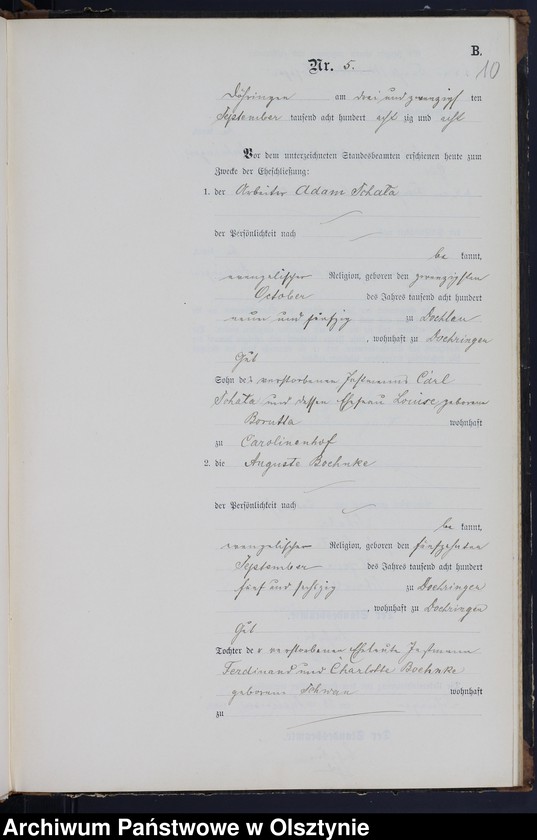 B.
10
Nr. 5.
Döhringen am drei und zwanzigsten
September tausend acht hundert acht zig und acht
Vor dem unterzeichneten Standesbeamten erschienen heute zum
Zwecke der Eheschließung:
1. der Arbeiter Adam Schata
der Persönlichkeit nach
be kannt,
evangelischer Religion, geboren den zwanzigsten
October des Jahres tausend acht hundert
neun und fünfzig zu Dochlau
, wohnhaft zu Doehringen
Gut
Sohn des verstorbenen Instmanns Carl
Schata und dessen Ehefrau Louise geborene
Borutta wohnhaft
zu Carolinenhof
2. die Auguste Boehnke
der Persönlichkeit nach
be kannt,
evangelischer Religion, geboren den fünfzehnten
September des Jahres tausend acht hundert
fünf und sechzig zu Doehringen
, wohnhaft zu Doehringen
Gut
Tochter der verstorbenen Eheleute Instmann
Ferdinand und Charlotte Boehnke
geborene Schwan wohnhaft
zu
Archiwum Państwowe w Olsztynie